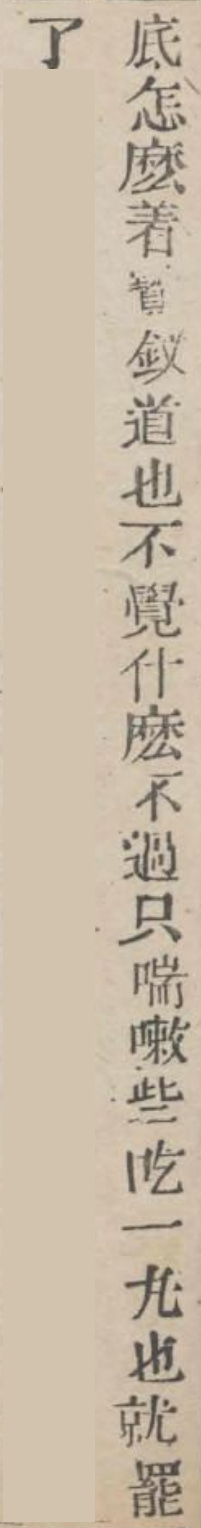 底怎麽着寶釵道也不覺什麽不過只喘嗽些吃一丸也就罷
了